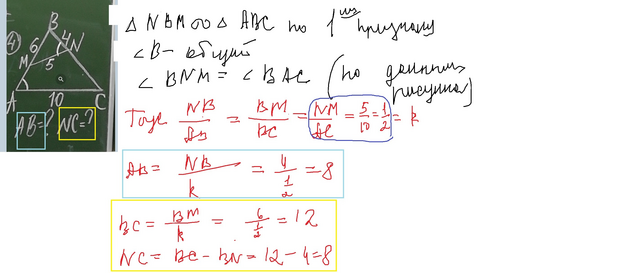 ④
B
6
4
N
M
5
A
10
C
AB=?
NC=?
Δ NBM ∞ Δ ABC по 1 му признаку
∠B – общий
∠ BNM = ∠ BAC (по данным рисунка)
Тогда NB/AB = BM/BC = NM/AC = 5/10 = 1/2 = k
AB = NB/k = 4/(1/2) = 8
BC = BM/k = 6/(1/2) = 12
NC = BC – BN = 12 – 4 = 8